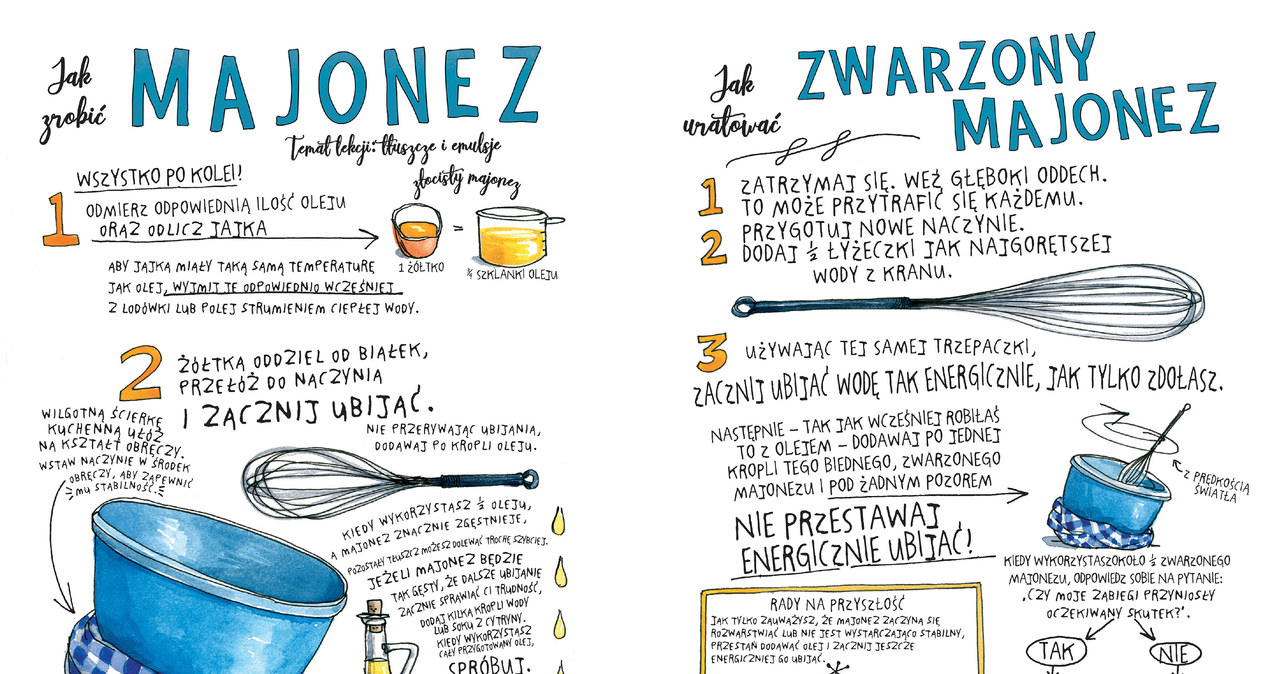 Jak
zrobić
MAJONEZ
Temat lekcji: tłuszcze i emulsje
złocisty majonez
WSZYSTKO PO KOLEI!
1 ODMIERZ ODPOWIEDNIĄ ILOŚĆ OLEJU
ORAZ ODLICZ JAJKA
1 ŻÓŁTKO
=
¾ SZKLANKI OLEJU
ABY JAJKA MIAŁY TAKĄ SAMĄ TEMPERATURĘ
JAK OLEJ, WYJMIJ JE ODPOWIEDNIO WCZEŚNIEJ
Z LODÓWKI LUB POLEJ STRUMIENIEM CIEPŁEJ WODY.
2 ŻÓŁTKA ODDZIEL OD BIAŁEK,
PRZEŁÓŻ DO NACZYNIA
I ZACZNIJ UBIJAĆ.
WILGOTNĄ ŚCIERKĘ
KUCHENNĄ UŁÓŻ
NA KSZTAŁT OBRĘCZY.
WSTAW NACZYNIE W ŚRODEK
OBRĘCZY, ABY ZAPEWNIĆ
MU STABILNOŚĆ.
NIE PRZERYWAJĄC UBIJANIA,
DODAWAJ PO KROPLI OLEJU.
KIEDY WYKORZYSTASZ ½ OLEJU,
A MAJONEZ ZNACZNIE ZGĘSTNIEJE,
POZOSTAŁY TŁUSZCZ MOŻESZ DOLEWAĆ TROCHĘ SZYBCIEJ.
JEŻELI MAJONEZ BĘDZIE
TAK GĘSTY, ŻE DALSZE UBIJANIE
ZACZNIE SPRAWIAĆ CI TRUDNOŚĆ,
DODAJ KILKA KROPLI WODY
LUB SOKU Z CYTRYNY.
KIEDY WYKORZYSTASZ
CAŁY PRZYGOTOWANY OLEJ,
SPRÓBUJ.
Jak
uratować
ZWARZONY
MAJONEZ
1 ZATRZYMAJ SIĘ. WEŹ GŁĘBOKI ODDECH.
TO MOŻE PRZYTRAFIĆ SIĘ KAŻDEMU.
2 PRZYGOTUJ NOWE NACZYNIE.
DODAJ ½ ŁYŻECZKI JAK NAJGORĘTSZEJ
WODY Z KRANU.
3 UŻYWAJĄC TEJ SAMEJ TRZEPACZKI,
ZACZNIJ UBIJAĆ WODĘ TAK ENERGICZNIE, JAK TYLKO ZDOŁASZ.
NASTĘPNIE – TAK JAK WCZEŚNIEJ ROBIŁAŚ
TO Z OLEJEM – DODAWAJ PO JEDNEJ
KROPLI TEGO BIEDNEGO, ZWARZONEGO
MAJONEZU I POD ŻADNYM POZOREM
NIE PRZESTAWAJ
ENERGICZNIE UBIJAĆ!
Z PRĘDKOŚCIĄ
ŚWIATŁA
KIEDY WYKORZYSTASZOKOŁO ½ ZWARZONEGO
MAJONEZU, ODPOWIEDZ SOBIE NA PYTANIE:
„CZY MOJE ZABIEGI PRZYNIOSŁY
OCZEKIWANY SKUTEK?".
TAK
NIE
RADY NA PRZYSZŁOŚĆ
JAK TYLKO ZAUWAŻYSZ, ŻE MAJONEZ ZACZYNA SIĘ
ROZWARSTWIAĆ LUB NIE JEST WYSTARCZAJĄCO STABILNY,
PRZESTAŃ DODAWAĆ OLEJ I ZACZNIJ JESZCZE
ENERGICZNIEJ GO UBIJAĆ.